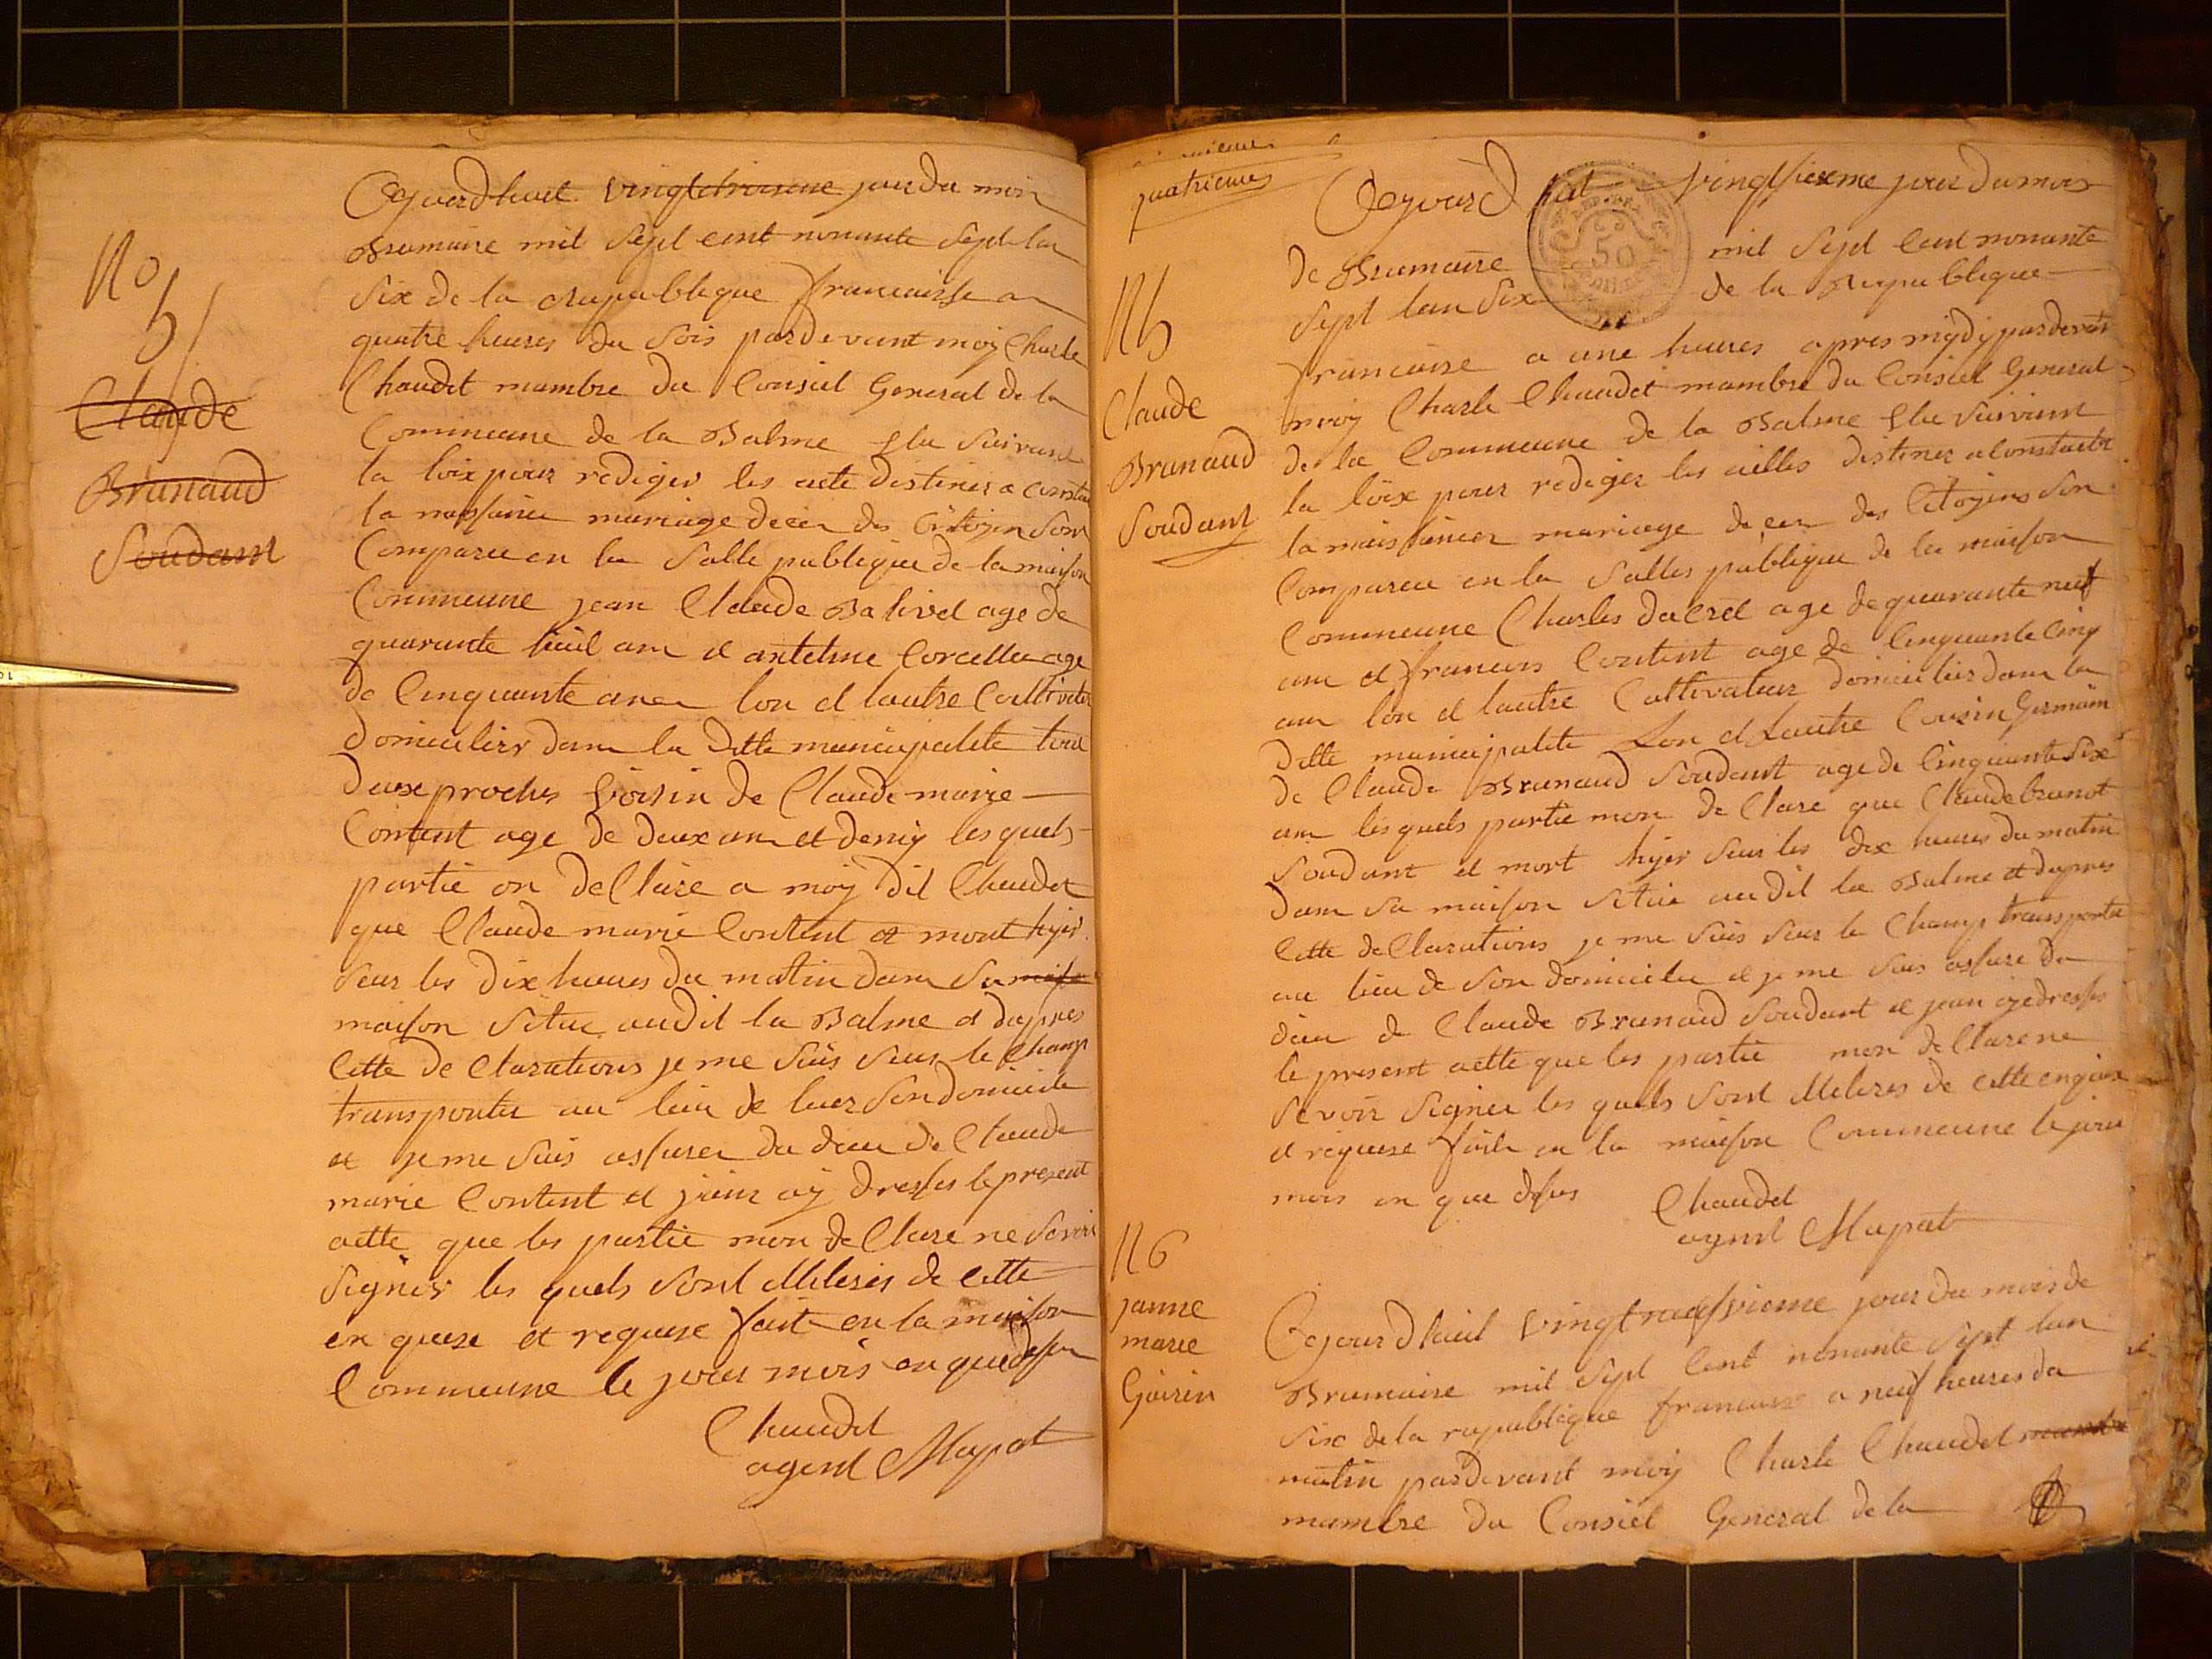 No
5
Claude
Brunaud
Soudant
Aujourdhuit vingtetroisieme jour du mois
Brumaire mil Sept cent nonante Sept lan
Six de la Republique francaisse a
quatre heures du Soir pardevant moy Charle
Chaudet mambre du Consiel General de la
Commeune de la Balme Elu Suivant
la loix pour rediger les acte destines a Constate
la naissance mariage deces des Citoyen Sont
Comparu en la Salle publique de la maison
Commeune jean Claude Balivet age de
quarante huit ans et antelme Corcellu age
de Cinquante anes lon et lautre Cultivateur
domicilier dans la ditte municipalite tout
deux proches voisin de Claude marie
Content age de deux an et demy les quels
partie on declare a moy dit Chaudet
que Claude marie Content et mort hyer
Seur les dix heures du matin dans Sa maiso
maison Situe audit la Balme et dapres
Cette declarations je me Suis Seur le Champ
transportee au lieu de leur Son domicile
et je me Suis assurer du deces de Claude
marie Content et jeant ay dresses le present
actte que les partie mon declare ne Savoir
Signer les quels Sont de
en quese et requese fait en la maison
Commeune le jour mois en que dessu
Chaudet
agent Mapat
quatrieme
Aujourdhuit vingtsixeme jour du mois
de Brumaire mil Sept Cent nonante
Sept lan Six de la Republique
50
N5
Claude
Brunaud
Soudant
francaise a une heures apres mydy pardevant
moy Charle Chaudet mambre du Consiel General
de la Commeune de la Balme Elu Suivant
la loix pour rediger les actes destiner a Constatte
la naissances mariage deces des Citoyens Son
Comparu en la Salles publique de la maison
Commeune Charles ducret age de quarante neuf
ans et francois Content age de Cinquante Cinq
ans lon et lautre Cultivateur domicilier dans la
ditte municipalite Lon et Lautre Cousin Germain
de Claude Brunaud Soudant age de Cinquante Six
ans les quels partie mon declare que Claude brunot
Soudant et mort hyer Seur les dix heures du matin
dans Sa maison Situe audit la Balme et dapres
Cette declarations je me Suis Seur le Champ transportee
au lieu de Son domicilu et je me Suis assure du
deces de Claude Brunaud Soudant et jean ay dresses
le present actte que les partie mon declare ne
Savoir Signer les quels Sont de cette en
et requese fait en la maison Commeune le jour
mois en que desus
Chaudet
agent Mapat
N6
janne
marie
Goirin
Aujourdhuit vingtneufvieme jour du mois de
Brumaire mil Sept Cent nonante Sept lan
Six de la republique francaise a neuf heures du
matin pardevant moy Charle Chaudet mambre
mambre du Consiel General de la